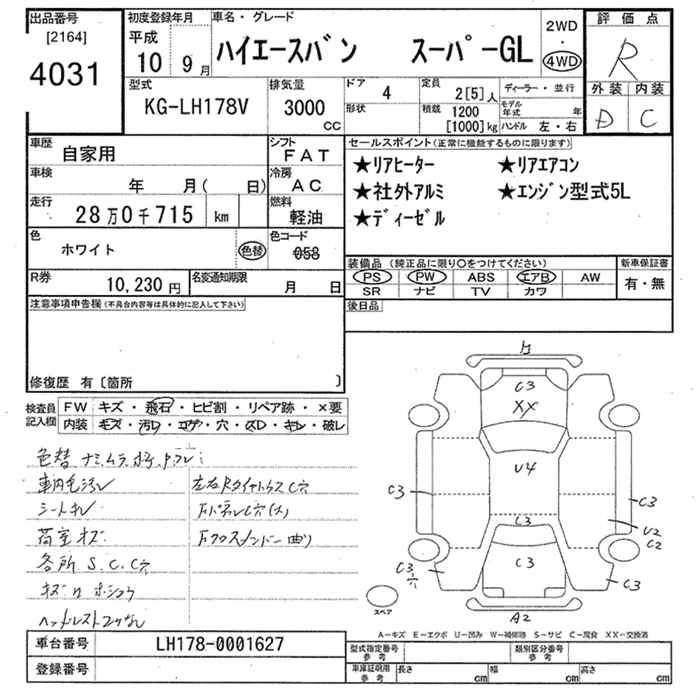 出品番号
[2164]
4031
初度登録年月
平成
10 9月
車名・グレード
ハイエースバン スーパーGL
2WD
・
4WD
評価点
R
型式
KG-LH178V
排気量
3000
CC
ドア 4
形状
定員 2[5]人
積載 1200
[1000]kg
ディーラー・並行
モデル年式 年
ハンドル 左・右
外装 内装
D C
車歴 自家用
シフト FAT
車検 年 月( 日)
冷房 AC
走行 28万0千715 km
燃料 軽油
色 ホワイト 色替
色コード 058
R券 10,230円
名変通知期限 月 日
セールスポイント(正常に機能するものに限ります)
★リアヒーター ★リアエアコン
★社外アルミ ★エンジン型式5L
★ディーゼル
装備品(純正品に限り○をつけてください)
PS PW ABS エアB AW
SR ナビ TV カワ
新車保証書
有・無
後日品
注意事項申告欄(不具合内容等は具体的に記入して下さい)
修復歴 有〔箇所 〕
検査員記入欄
FW キズ・飛石・ヒビ割・リペア跡・×要
内装 キズ・汚レ・コゲ・穴・スレ・キレ・破レ
色替
シートキレ
荷室キズ
各所 S.C.穴
C3
XX
U4
C3
C3
C3
C3
U2
C2
C3
C3
A2
スペア
A－キズ E－エクボ U－凹み W－補修跡 S－サビ C－腐食 XX－交換済
車台番号 LH178-0001627
登録番号
型式指定番号参考
類別区分番号参考
車庫証明用参考
長さ cm
幅 cm
高さ cm